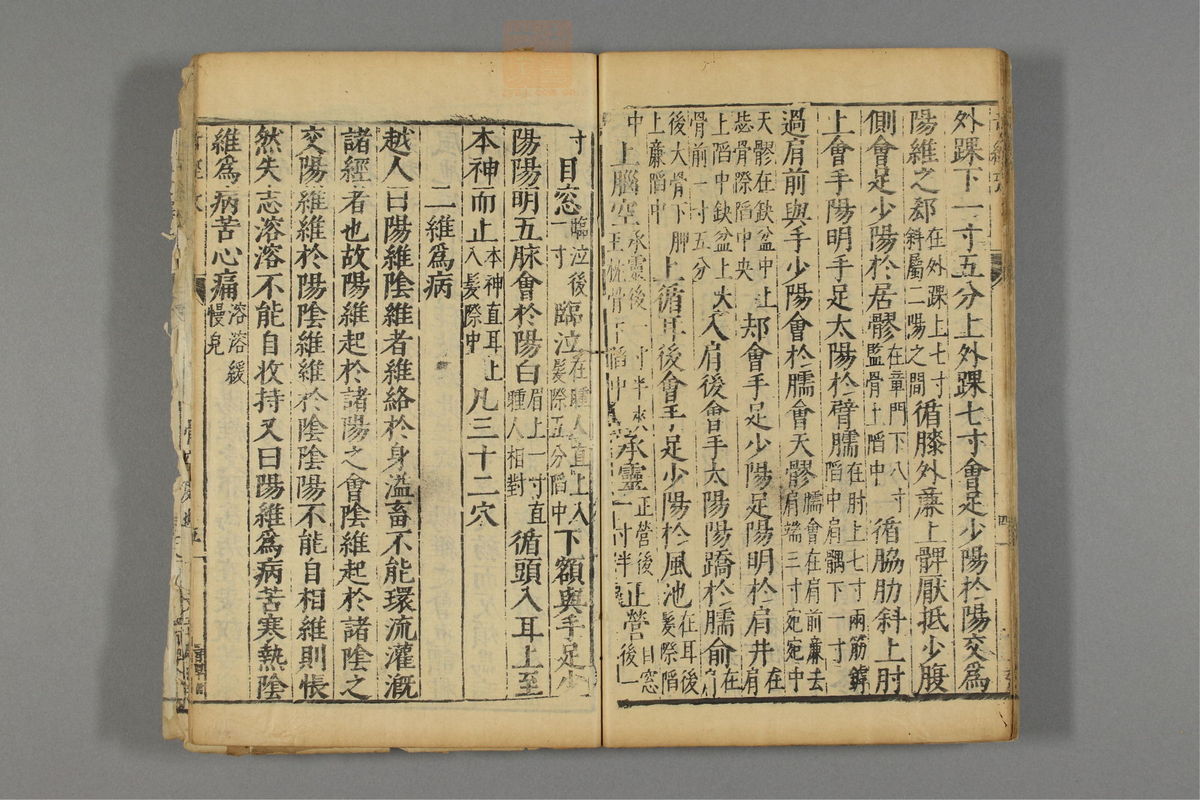 外踝下一寸五分上外踝七寸會足少陽於陽交爲
陽維之郄在外踝上七寸斜屬二陽之間循膝外廉上髀厭抵少腹
側會足少陽於居髎在章門下八寸監骨上陷中循脇肋斜上肘
上會手陽明手足太陽於臂臑在肘上七寸兩筋罅陷中肩髃下一寸
過肩前與手少陽會於臑會天髎臑會在肩前廉去肩端三寸宛宛中
天髎在缺盆中上毖骨際陷中央却會手足少陽足陽明於肩井在肩
上陷中缺盆上大骨前一寸五分入肩後會手太陽陽蹻於臑俞在
後大骨下胛上廉陷中上循耳後會手足少陽於風池在耳後髮際陷
中上腦空承靈後一寸半夾玉枕骨下陷中承靈正營後一寸半正營目窓後一
寸目窓臨泣後一寸臨泣在瞳人直上入髮際五分陷中下額與手足少
陽陽明五脉會於陽白眉上一寸直瞳人相對循頭入耳上至
本神而止本神直耳上入髮際中凡三十二穴
二維爲病
越人曰陽維陰維者維絡於身溢畜不能環流灌漑
諸經者也故陽維起於諸陽之會陰維起於諸陰之
交陽維維於陽陰維維於陰陰陽不能自相維則悵
然失志溶溶不能自收持又曰陽維爲病苦寒熱陰
維爲病苦心痛溶溶緩慢皃